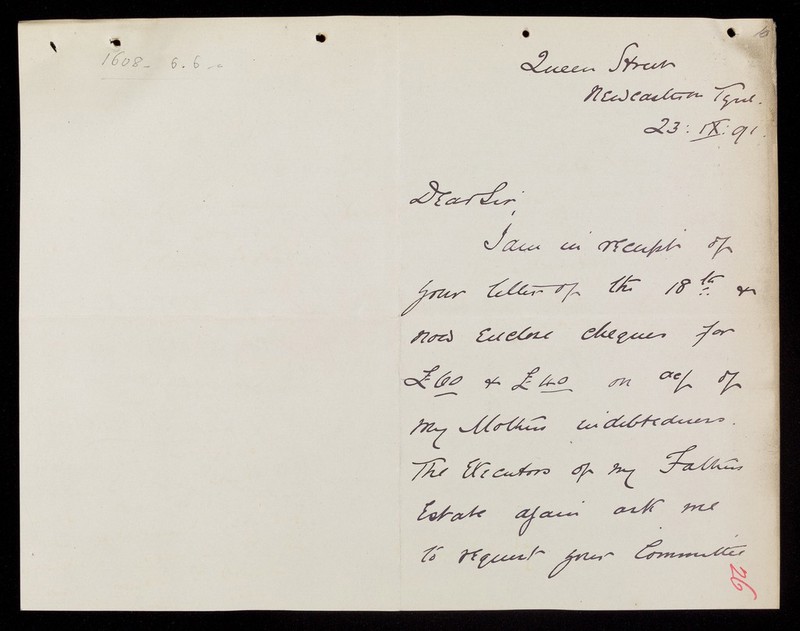 1608-6.6-
Queen Street
Newcastle on Tyne.
23: IX: 91.
Dear Sir,
I am in receipt of
your letter of the 18th &
now Enclose cheques for
£60 & £40 on a/c of
my Mothers indebtedness.
The Executors of my Fathers
Estate again ask me
to request your Committee
26